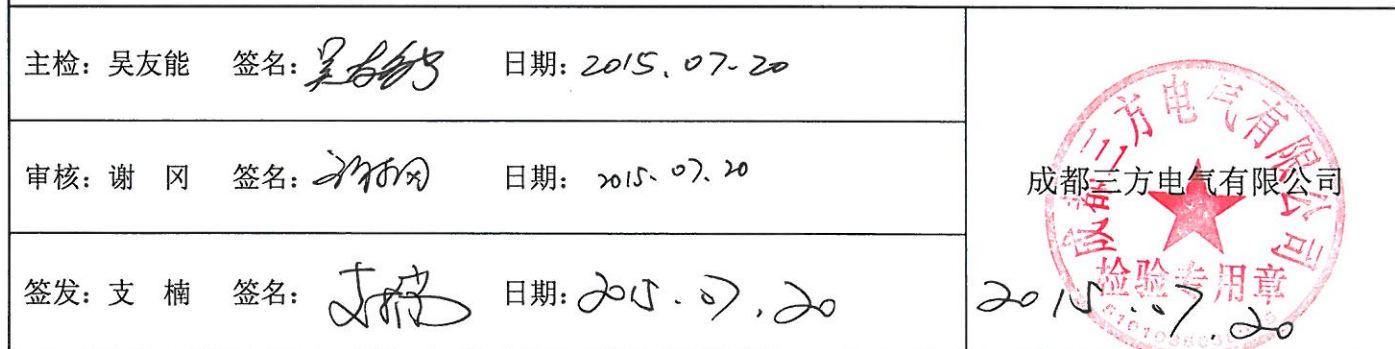 主检：吴友能 签名：吴友能 日期：2015.07-20
审核：谢 冈 签名：谢冈 日期：2015.07.20
签发：支 楠 签名：支楠 日期：2015.07.20
成都三方电气有限公司
成都三方电气有限公司
检验专用章
2015.07.20